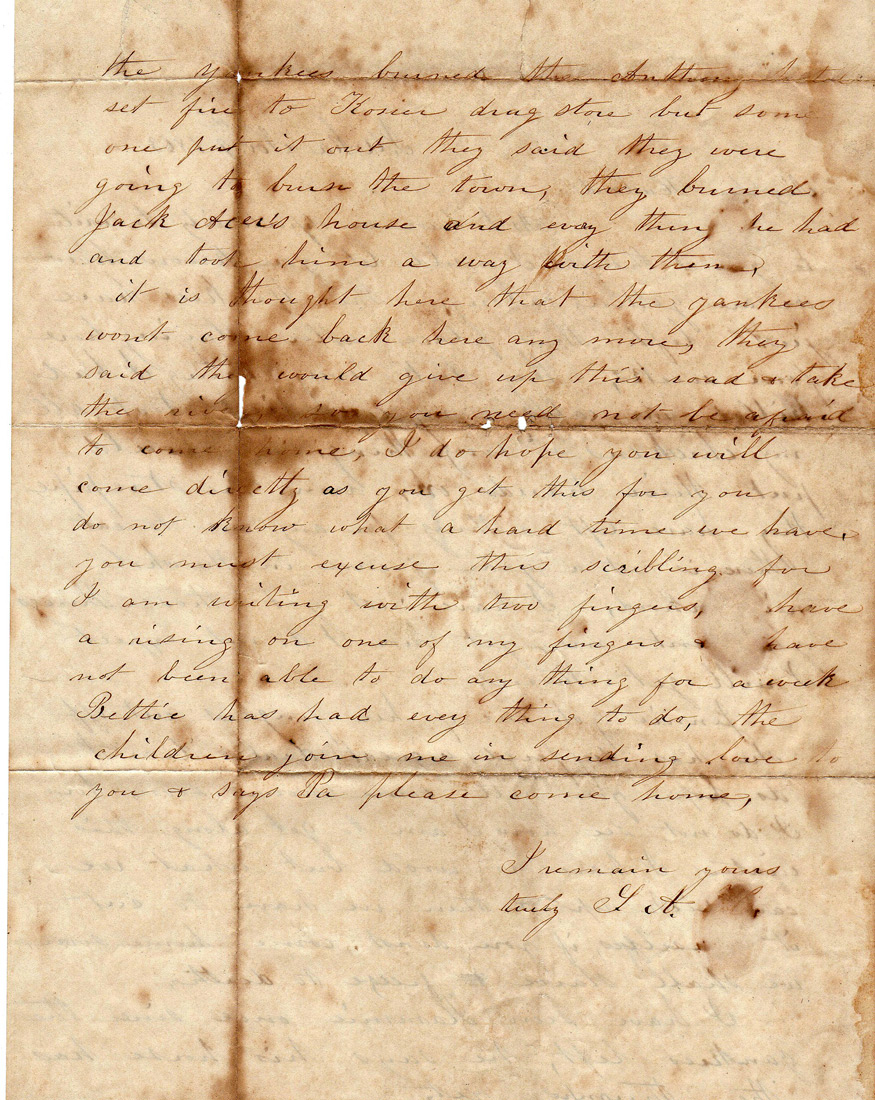 the yankees burned the Anthony
set fire to Kosier drug store but some
one put it out they said they were
going to burn the town, they burned
Jack Acer's house and evry thing he had
and took him a way with them,
it is thought here that the yankees
wont come back here any more, they
said they would give up this road & take
the river, so you need not be afraid
to come home, I do hope you will
come directly as you get this for you
do not know what a hard time we have,
you must excuse this scribling for
I am writing with two fingers, have
a rising on one of my fingers & have
not been able to do any thing for a week
Bettie has had every thing to do, the
children join me in sending love to
you & says Pa please come home,
I remain yours
truly S A.